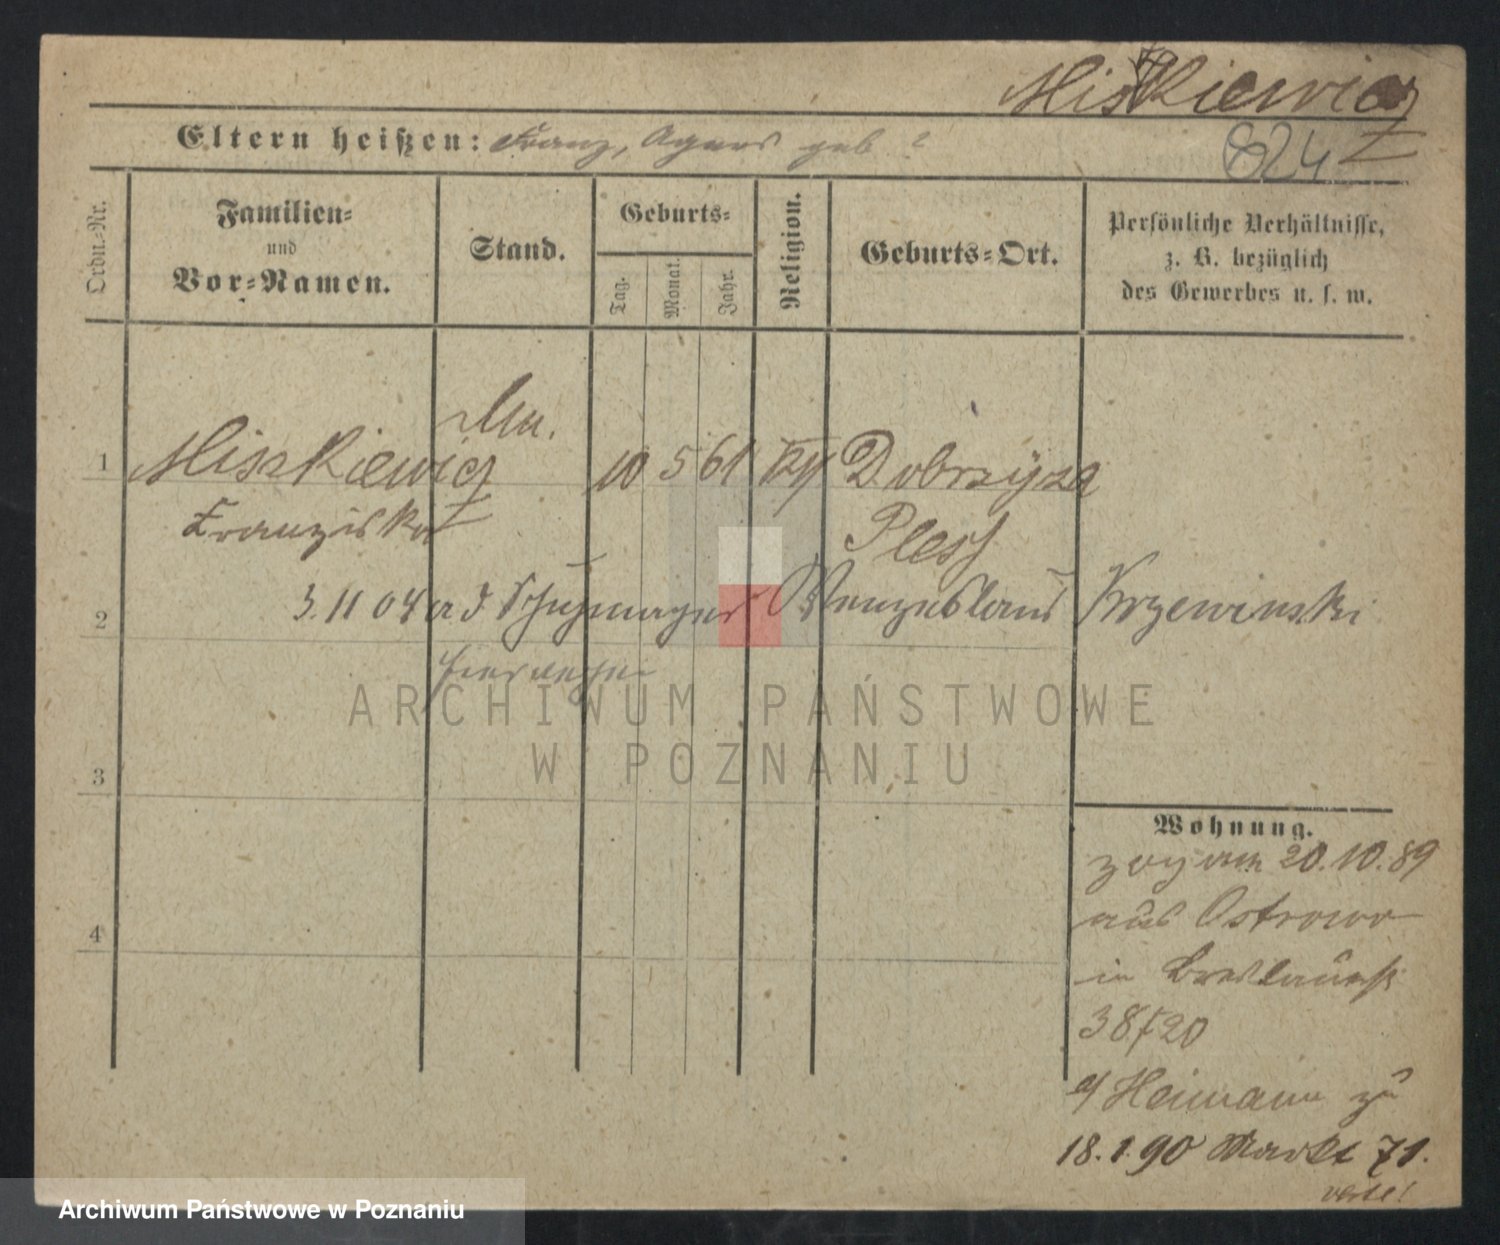 Miszkiewicz
824
Eltern heißen: Franz, Agnes geb ?
Ordn.-Nr.
Familien-
und
Vor-Namen.
Stand.
Geburts-
Tag.
Monat.
Jahr.
Religion.
Geburts-Ort.
Persönliche Verhältnisse,
z. B. bezüglich
des Gewerbes u. s. w.
1 Miszkiewicz 10 5 61 Dobrzyca
Franziska
Plesch
2 3.11 04 Wenzeslaus Krzewinski
ARCHIWUM PAŃSTWOWE
W POZNANIU
3
Wohnung.
20.10.89
4 aus Ostrowo
in Breslauerstr
38/20
b/ Heimann zu
18.1.90 Markt 71.
verte!
Archiwum Państwowe w Poznaniu